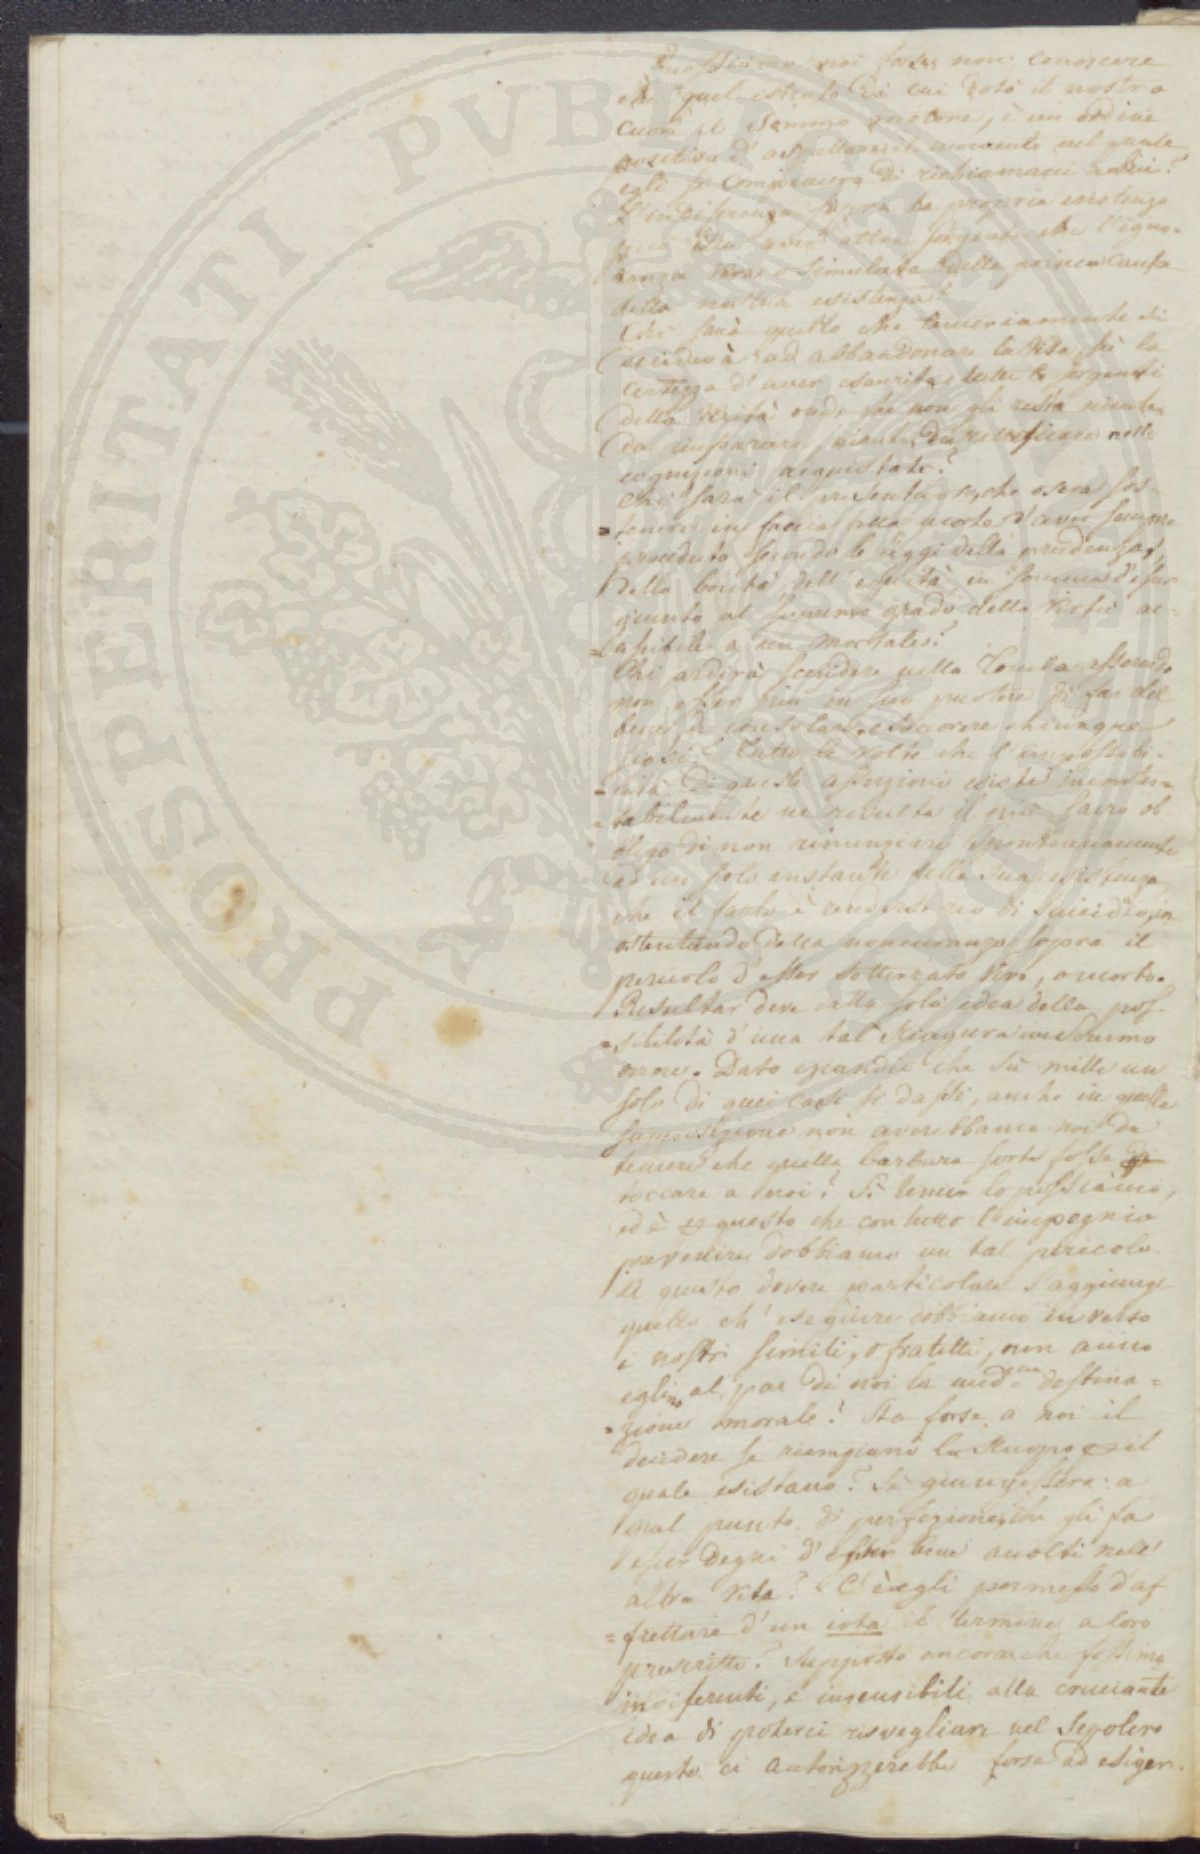 Possiamo noi forse non conoscere
che quel istinto di cui dotò il nostro
cuore il Sommo motore, è un ordine
positivo d'aspettare il momento nel quale
egli si compiacerà di richiamarci a Lui?
L'indiferenza sopra la propria esistenza
può ella aver altra sorgente che l'igno-
ranza vera o simulata della prima Causa
della nostra esistenza?
Chi sarà quello che temeriamente si
deciderà ad abbandonar la Vita, sù la
certezza d'aver esaurite tutte le sorgenti
della verità onde che non gli resta niente
da imparare, niente da retificare nelle
cognizioni acquistate?
Chi sarà il presentuoso, che oserà sos-
=tenere in faccia alla morte d'aver sempre
proceduto secondo le leggi della prudenza,
della bontà, dell'equità, in somma d'esser
giunto al supremo grado della Virtù ac=
=cessibile a un mortale?
Chi ardirà scendere nella Tomba essendo
non esser più in suo puotere di far del
bene, di consolare, e soccorere chiunque
siasi? Tutte le volte che l'impossibi-
=lità di queste asserzioni esiste incontes=
=tabilmente ne risulta il più sacro ob-
bligo di non rinunziare spontaneamente
ad un solo instante della sua esistenza
che il farlo è rendersi reo di suicidio, in
ostentando della noncuranza sopra il
pericolo d'esser sotterrato vivo, o morto.
Resultar deve dalla sola idea della pos-
=sibilità d'una tal sciagura un sommo
orrore. Dato eziandio che sù mille un
solo di quei casi si dassi, anche in quella
supposizione non averebbamo noi da
temere che quella barbara sorte fosse
toccare a noi? Si temer lo possiamo,
ed è per questo che con tutto l'impegnio
prevenire dobbiamo un tal pericolo.
A questo dovere particolare s'aggiunge
quello ch'eseguire dobbiamo in verso
i nostri simili, o fratelli, non anno
eglino al par di noi la med.ma destina=
=zione morale? Sta forse a noi il
decidere se riempiano lo scuopo per il
quale esistano? Se giungessero a
qual punto di perfezione, che gli fa
esser degni d'esser bene accolti nell'
altra Vita? C'è egli permesso d'af
=frettare d'un iota il termine a loro
prescritto? Supposto ancora che fossimo
indiferenti, e insensibili alla cruciante
idea di poterci risvegliare nel Sepolcro
questo ci autorizzerebbe forse ad esiger.
PROSPERITATI PUBLICAE